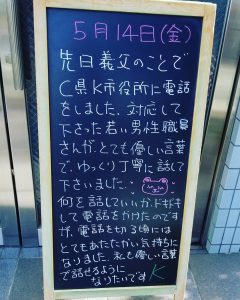 5月14日(金)
先日義父のことで
C県K市役所に電話
をしました。対応して
下さった若い男性職員
さんがとても優しい言葉
で、ゆっくり丁寧に話して
下さいました。
何を話していいか、ドキドキ
して電話をかけたのです
が、電話を切る頃には
とてもあたたかい気持ちに
なりました。私も優しい言葉
で話せるように
なりたいです K